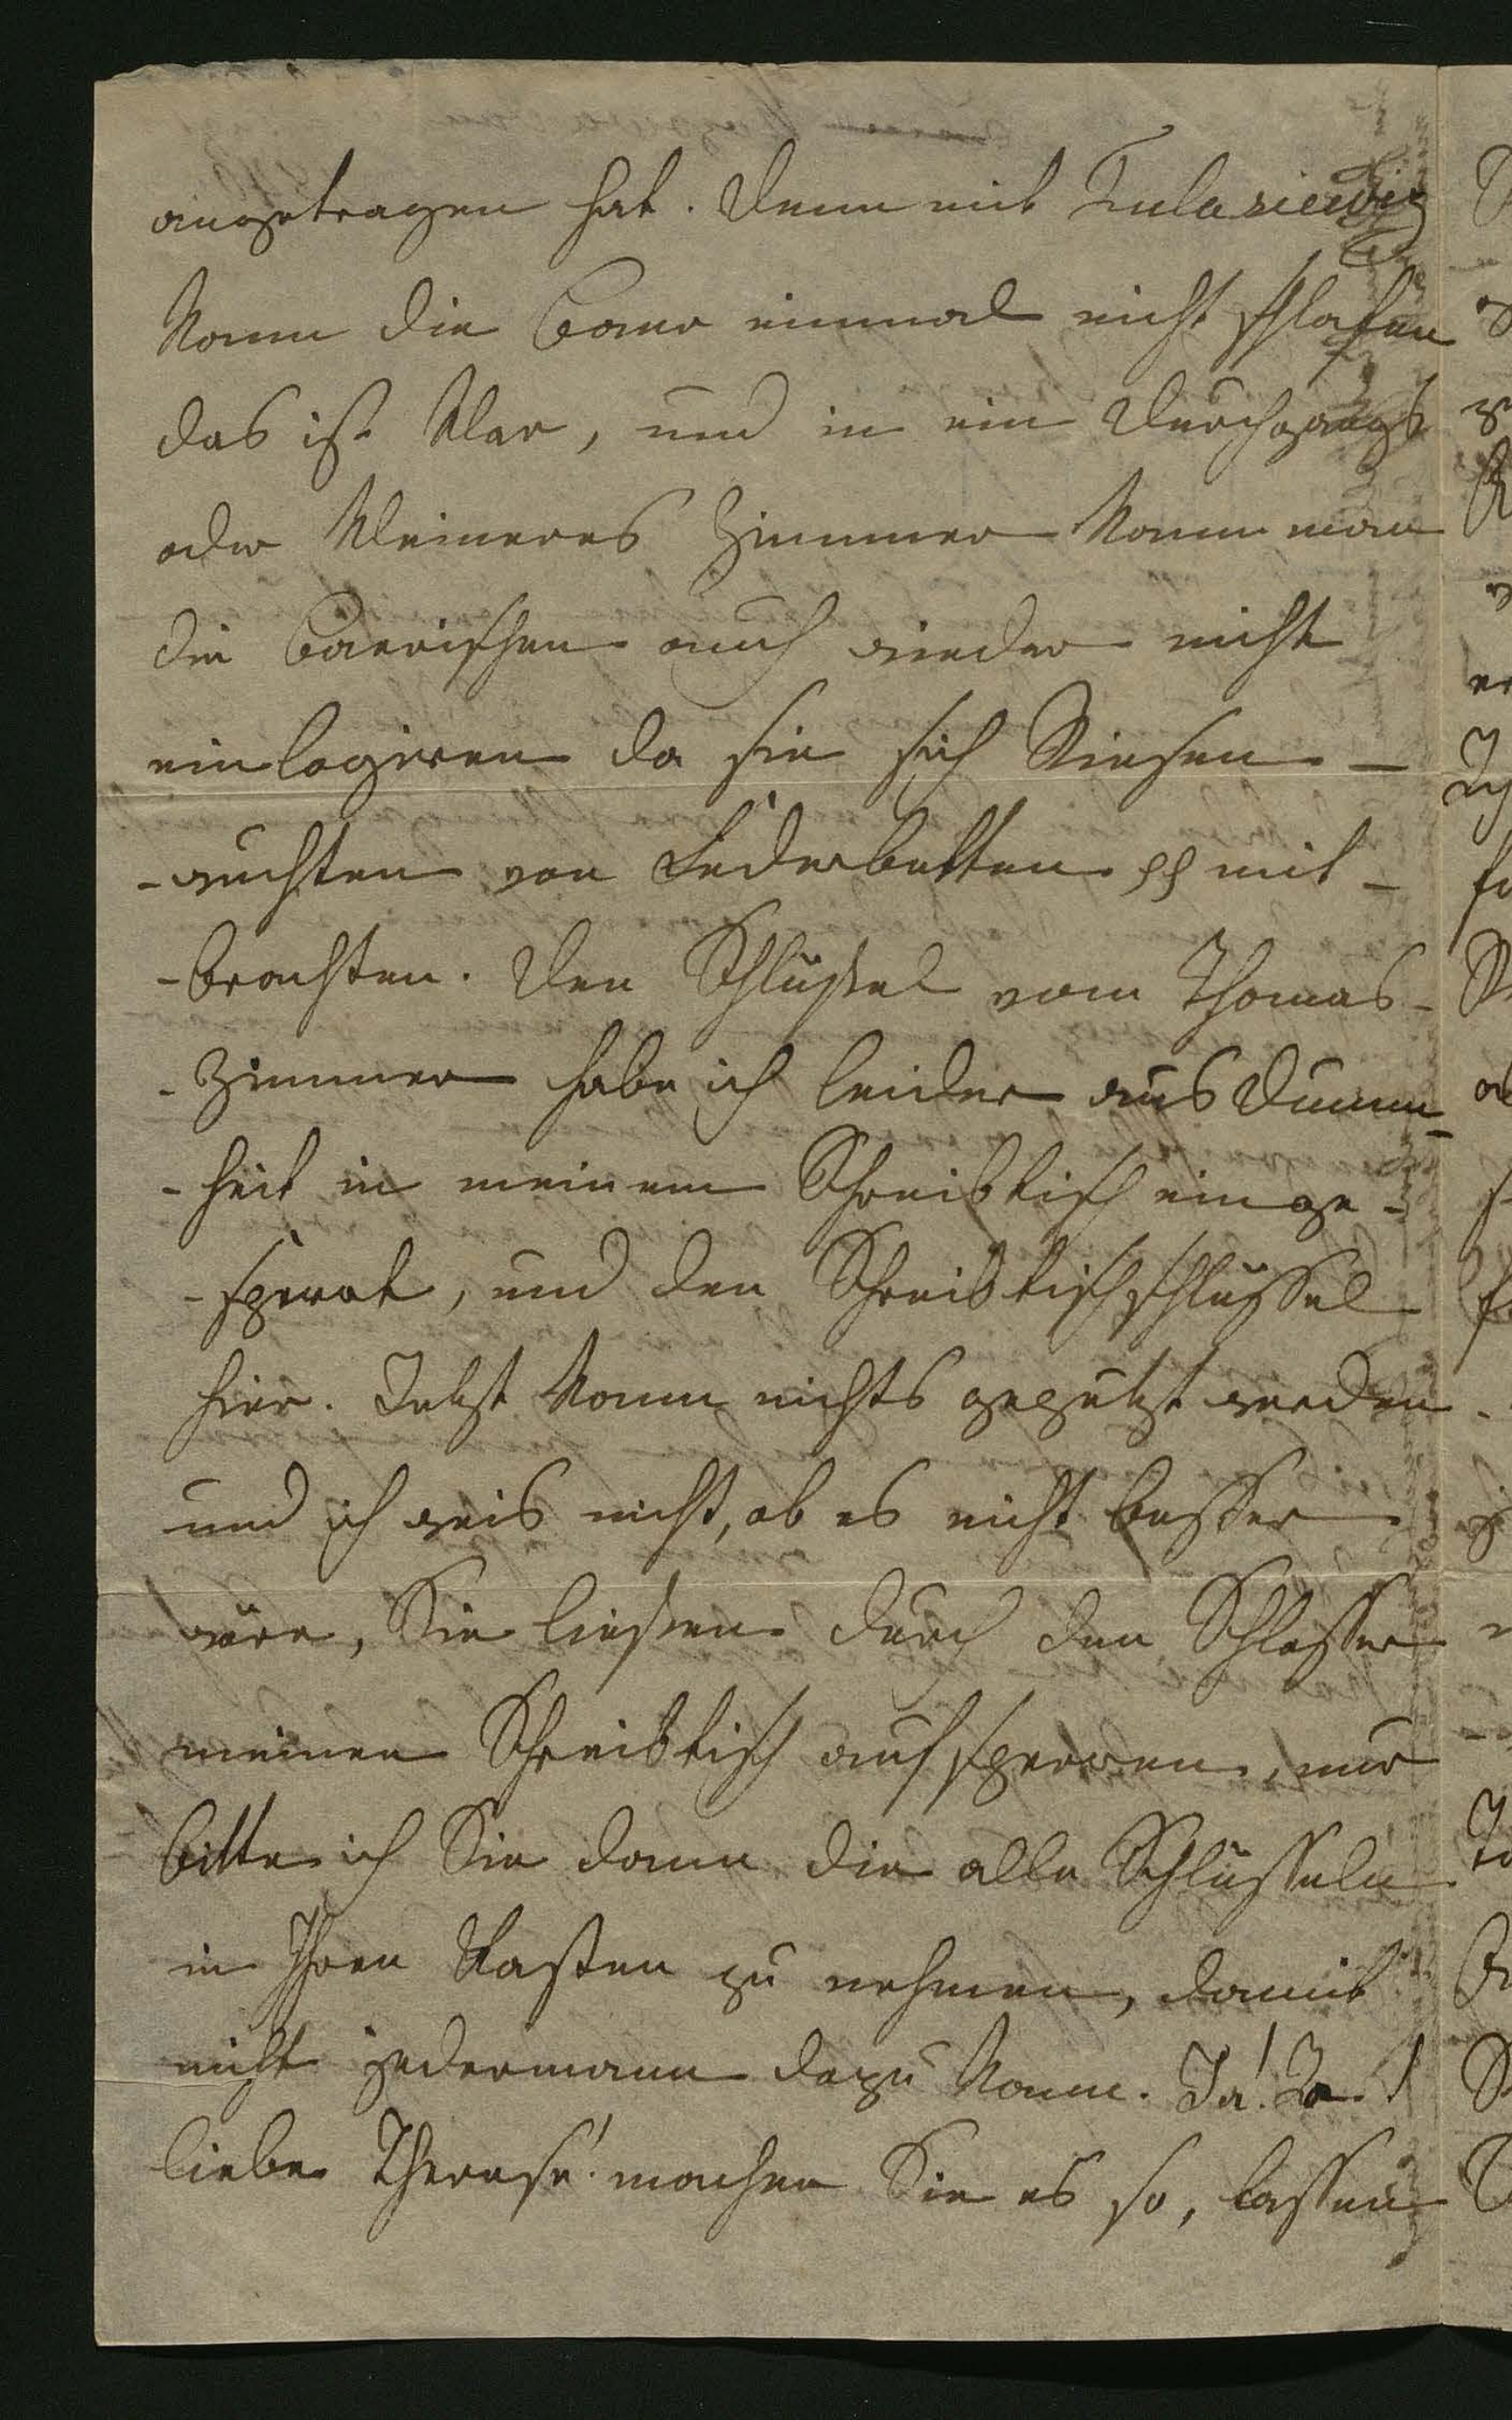 angetragen hat. Denn mit Tulasiewicz
kann die Baer einmal nicht schlafen
das ist klar, und in ein Durchgangs
oder kleineres Zimmer kann man
die Baerischen auch wieder nicht
einlogiren da sie sich Riesen-
-wuchten von Federbetten pp mit-
-brachten. Den Schlüßel vom Thomas-
-zimmer habe ich leider aus Dumm-
-heit in meinem Schreibtisch einge-
-sperrt, und den Schreibtischschlüssel
hier. Jetzt kann nichts geputzt werden
und ich weis nicht, ob es nicht besser
wäre, Sie ließen durch den Schlosser
meinen Schreibtisch aufsperren, nur
bitte ich Sie dann die alle Schlüsseln
in Ihren Kasten zu nehmen, damit
nicht jedermann dazu kann. Ja! Ja!
liebe Therese! machen Sie es so, lassen